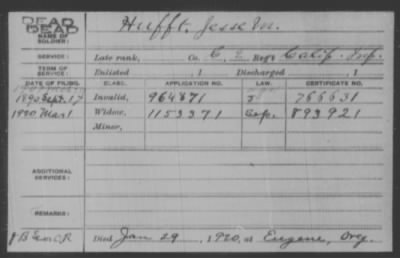 DEAD
DEAD
NAME OF SOLDIER: Hufft, Jesse M.
SERVICE: Late rank, Co. C, 2 Reg't Calif. Inf.
TERM OF SERVICE: Enlisted , 1 Discharged , 1
DATE OF FILING. CLASS. APPLICATION NO. LAW. CERTIFICATE NO.
1890 Sept. 17 Invalid, 964871 J 766631
1920 Mar 1 Widow, 1153371 Gep. 893921
Minor,
ADDITIONAL SERVICES:
REMARKS:
Died Jan 29, 1920, at Eugene, Oreg.